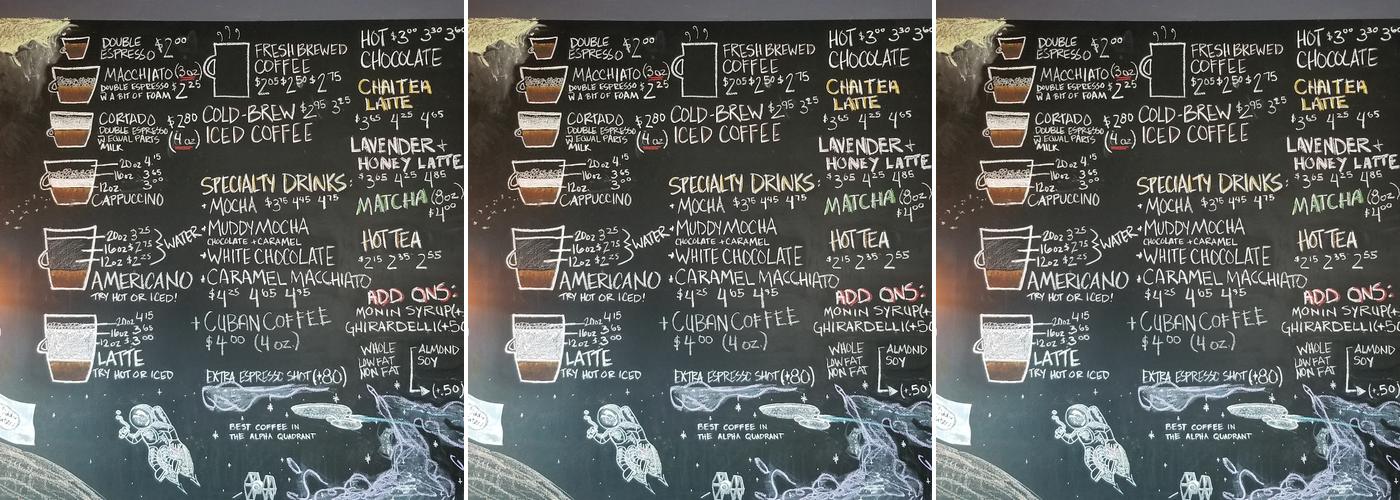 DOUBLE
ESPRESSO $2.00
MACCHIATO (3oz)
DOUBLE ESPRESSO $2.25
W A BIT OF FOAM
CORTADO $2.80
DOUBLE ESPRESSO
W EQUAL PARTS (4oz)
MILK
20oz 4.15
16oz 3.65
12oz. 3.00
CAPPUCCINO
20oz 3.25
16oz $2.75
12oz $2.25
WATER
AMERICANO
TRY HOT OR ICED!
20oz 4.15
16oz 3.65
12oz $3.00
LATTE
TRY HOT OR ICED
FRESH BREWED
COFFEE
$2.05 $2.50 $2.75
COLD-BREW $2.95 3.25
ICED COFFEE
SPECIALTY DRINKS:
MOCHA $3.75 4.45 4.75
MUDDY MOCHA
CHOCOLATE + CARAMEL
WHITE CHOCOLATE
CARAMEL MACCHIATO
$4.25 4.65 4.95
+ CUBAN COFFEE
$4.00 (4 oz.)
EXTRA ESPRESSO SHOT (+80)
HOT $3.00 3.30 3.60
CHOCOLATE
CHAI TEA
LATTE
$3.65 4.25 4.65
LAVENDER +
HONEY LATTE
$3.05 4.25 4.85
MATCHA (8oz)
$4.00
HOT TEA
$2.15 2.35 2.55
ADD ONS:
MONIN SYRUP(+
GHIRARDELLI(+50
WHOLE
LOW FAT
NON FAT
ALMOND
SOY
(+.50)
BEST COFFEE IN
THE ALPHA QUADRANT
DOUBLE
ESPRESSO $2.00
MACCHIATO (3oz)
DOUBLE ESPRESSO $2.25
W A BIT OF FOAM
CORTADO $2.80
DOUBLE ESPRESSO
W EQUAL PARTS (4oz)
MILK
20oz 4.15
16oz 3.65
12oz. 3.00
CAPPUCCINO
20oz 3.25
16oz $2.75
12oz $2.25
WATER
AMERICANO
TRY HOT OR ICED!
20oz 4.15
16oz 3.65
12oz $3.00
LATTE
TRY HOT OR ICED
FRESH BREWED
COFFEE
$2.05 $2.50 $2.75
COLD-BREW $2.95 3.25
ICED COFFEE
SPECIALTY DRINKS:
MOCHA $3.75 4.45 4.75
MUDDY MOCHA
CHOCOLATE + CARAMEL
WHITE CHOCOLATE
CARAMEL MACCHIATO
$4.25 4.65 4.95
+ CUBAN COFFEE
$4.00 (4 oz.)
EXTRA ESPRESSO SHOT (+80)
HOT $3.00 3.30 3.60
CHOCOLATE
CHAI TEA
LATTE
$3.65 4.25 4.65
LAVENDER +
HONEY LATTE
$3.05 4.25 4.85
MATCHA (8oz)
$4.00
HOT TEA
$2.15 2.35 2.55
ADD ONS:
MONIN SYRUP(+
GHIRARDELLI(+50
WHOLE
LOW FAT
NON FAT
ALMOND
SOY
(+.50)
BEST COFFEE IN
THE ALPHA QUADRANT
DOUBLE
ESPRESSO $2.00
MACCHIATO (3oz)
DOUBLE ESPRESSO $2.25
W A BIT OF FOAM
CORTADO $2.80
DOUBLE ESPRESSO
W EQUAL PARTS (4oz)
MILK
20oz 4.15
16oz 3.65
12oz. 3.00
CAPPUCCINO
20oz 3.25
16oz $2.75
12oz $2.25
WATER
AMERICANO
TRY HOT OR ICED!
20oz 4.15
16oz 3.65
12oz $3.00
LATTE
TRY HOT OR ICED
FRESH BREWED
COFFEE
$2.05 $2.50 $2.75
COLD-BREW $2.95 3.25
ICED COFFEE
SPECIALTY DRINKS:
MOCHA $3.75 4.45 4.75
MUDDY MOCHA
CHOCOLATE + CARAMEL
WHITE CHOCOLATE
CARAMEL MACCHIATO
$4.25 4.65 4.95
+ CUBAN COFFEE
$4.00 (4 oz.)
EXTRA ESPRESSO SHOT (+80)
HOT $3.00 3.30 3.60
CHOCOLATE
CHAI TEA
LATTE
$3.65 4.25 4.65
LAVENDER +
HONEY LATTE
$3.05 4.25 4.85
MATCHA (8oz)
$4.00
HOT TEA
$2.15 2.35 2.55
ADD ONS:
MONIN SYRUP(+
GHIRARDELLI(+50
WHOLE
LOW FAT
NON FAT
ALMOND
SOY
(+.50)
BEST COFFEE IN
THE ALPHA QUADRANT